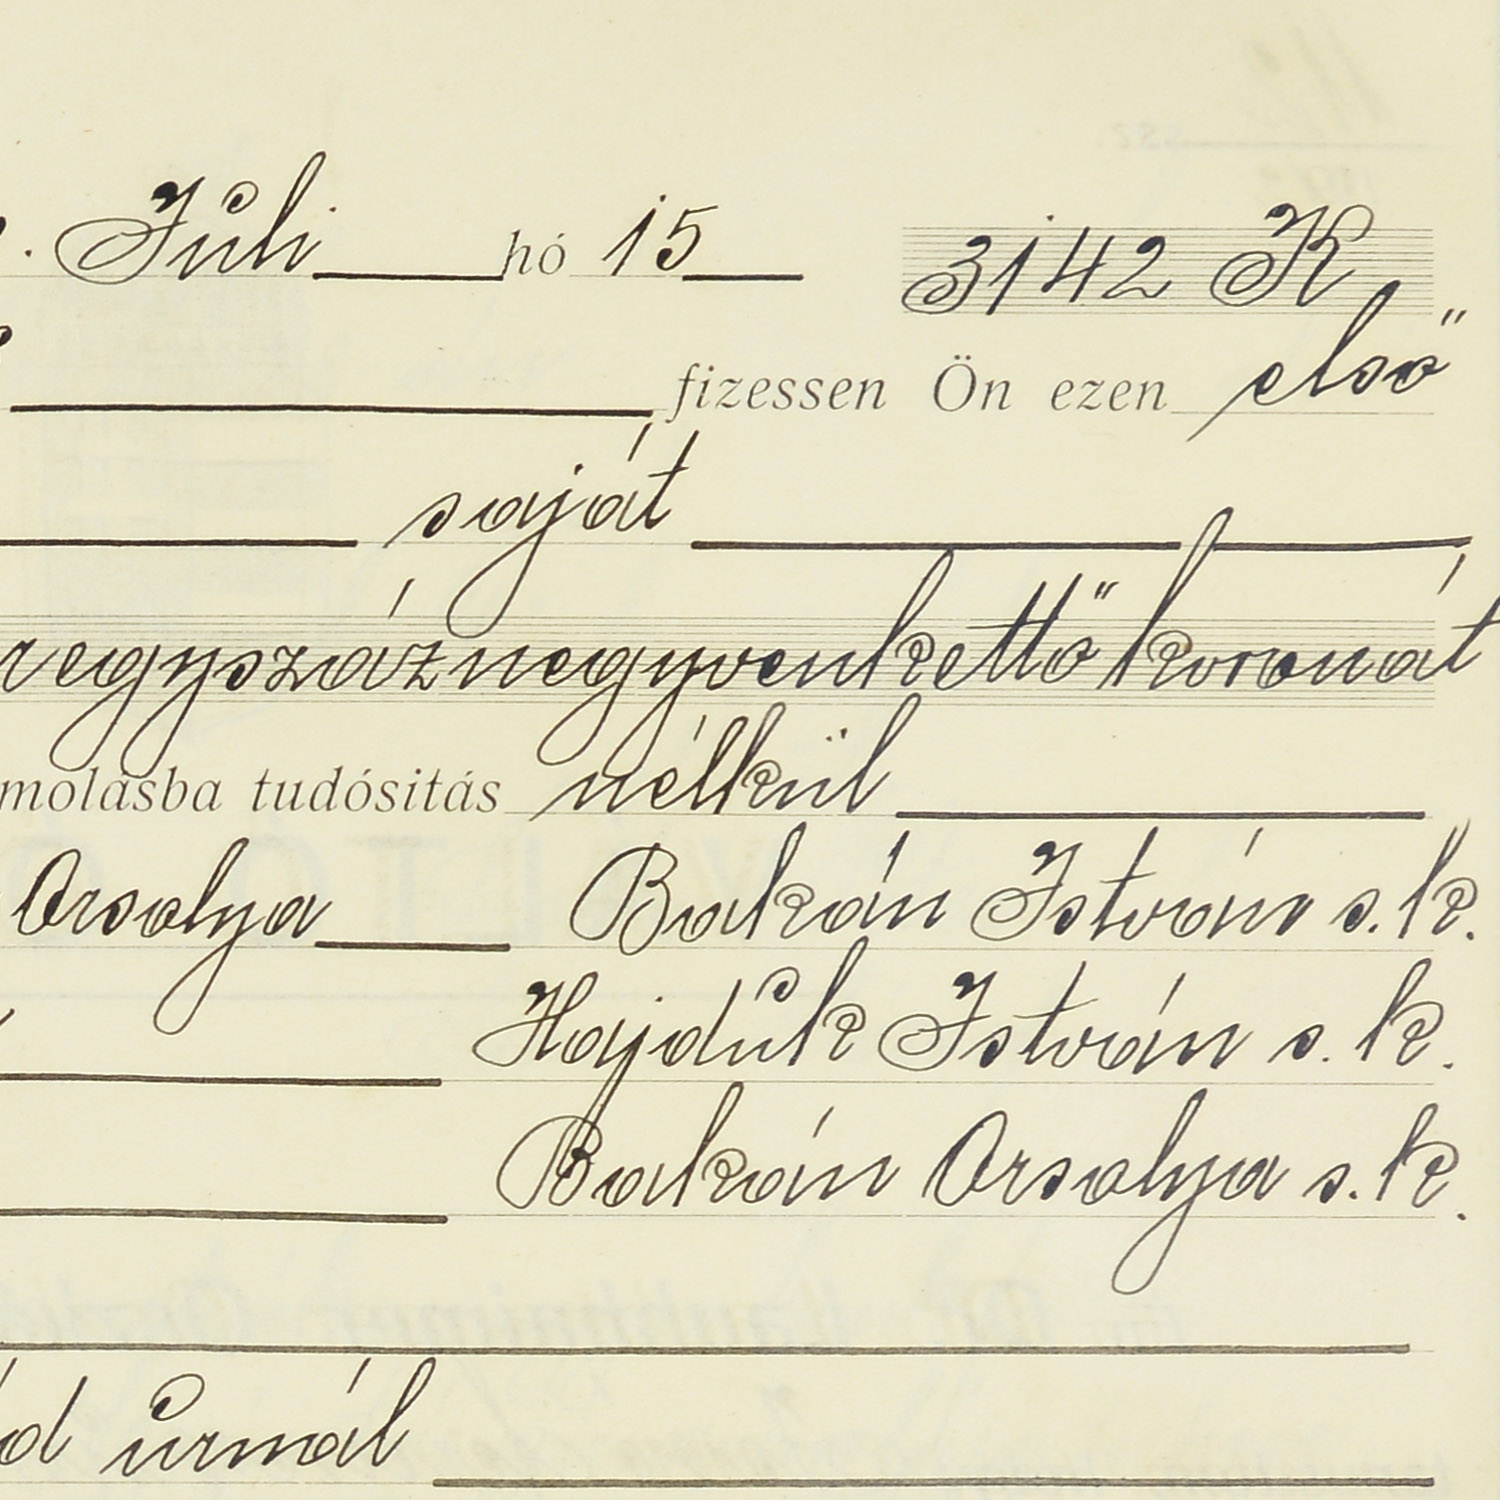 Júli hó 15 3142 K
fizessen Ön ezen első
saját
egyszáznegyvenkettő koronát
molásba tudósitás nélkül
Orsolya Bakán István s. k.
Hajdúk István s. k.
Bakán Orsolya s. k.
úrnál